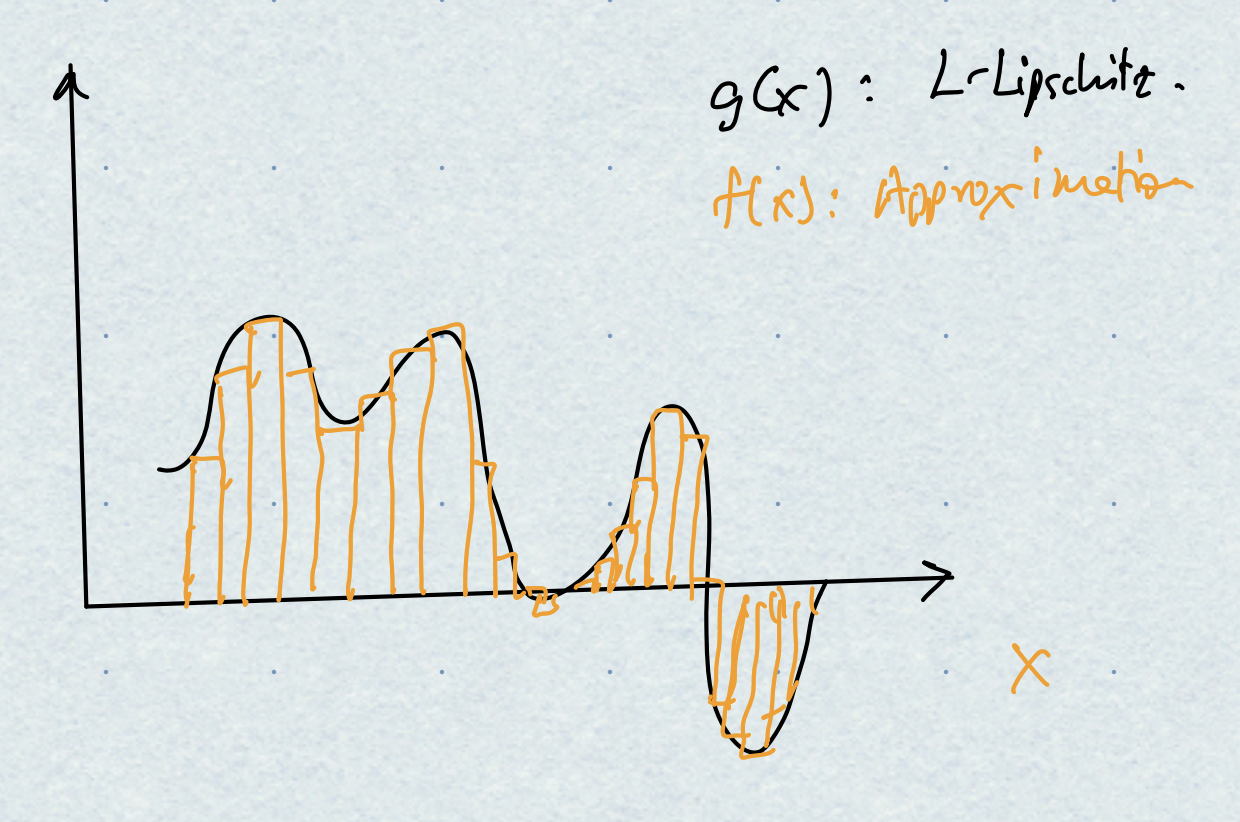 g(x): L-Lipschitz.
f(x): Approximation
X